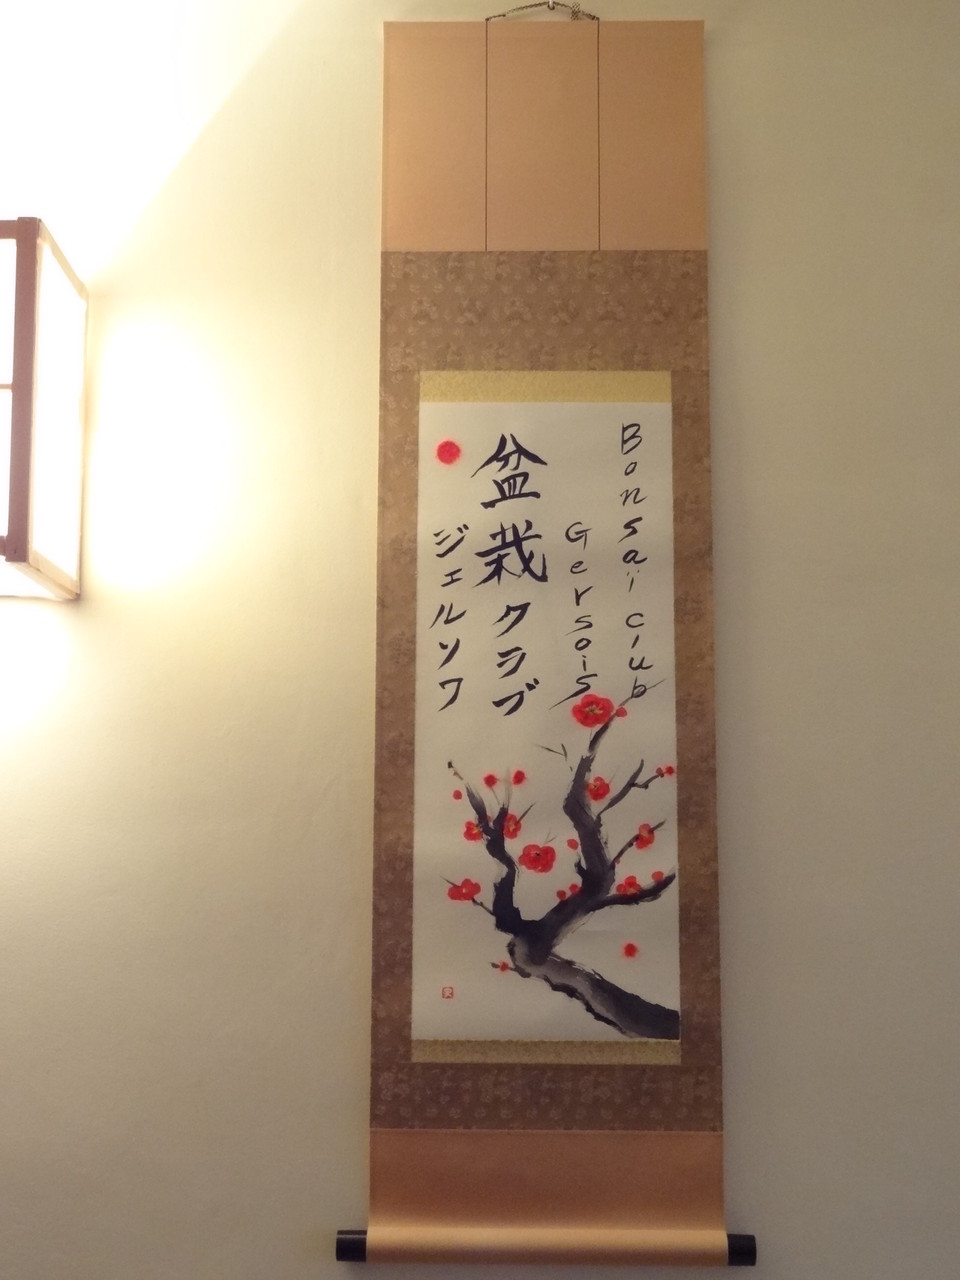 Bonsaï club
Gersois
盆栽クラブ
ジェルソワ